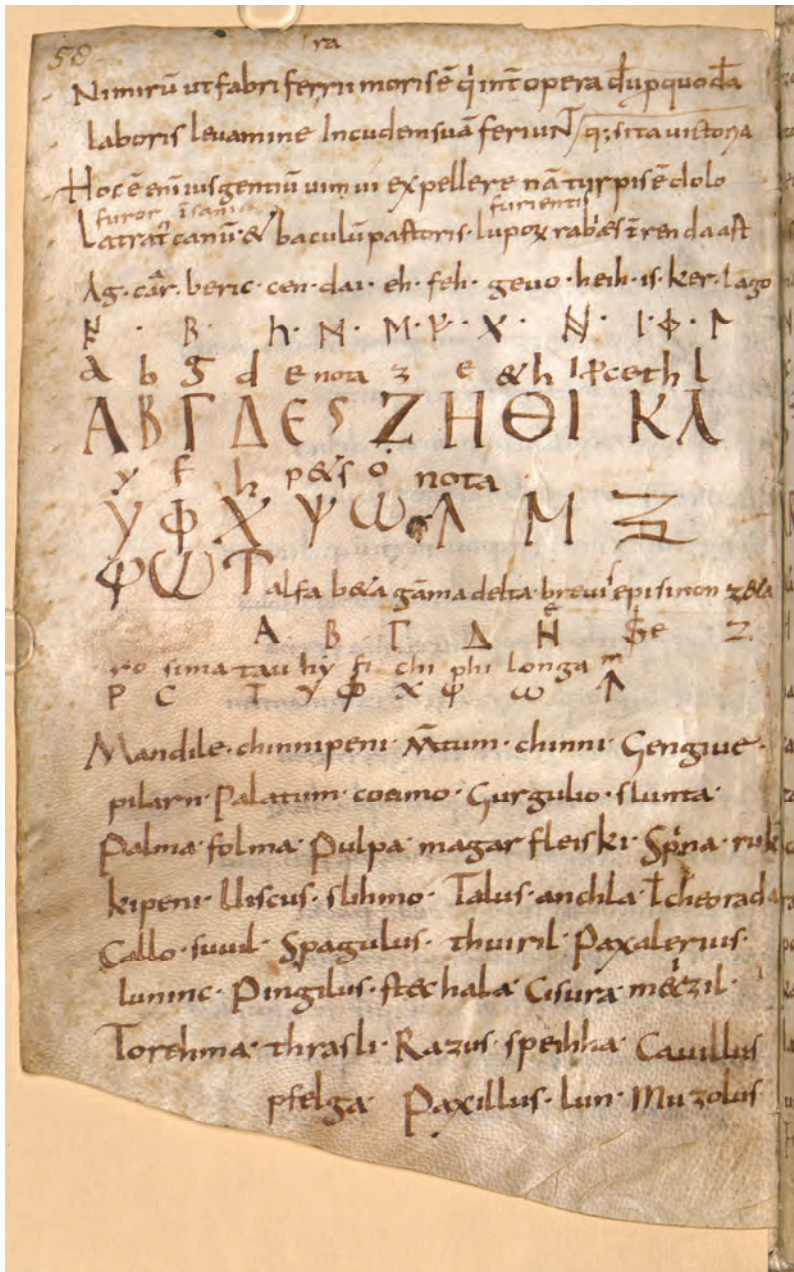 58 ra
Nimirū ut fabri ferri moris ē q̇ int̄ opera dūp quodā
laboris levamine Incudem suā feriunt q; sita victoria
Hoc ē enī ius gentiū uim ui expellere nā turpis ē dolo
furor īsania furientis
Latrat̄ canū & baculū pastoris · lupoꝝ rabies īrenda ast
Ag · câr · beric · cen · dai · eh · feh · gevo · heih · is · ker · lago
ᛒ · ᚻ
a b g d e nota z e &h I cceth l
Α Β Γ Δ Ε Ϛ Ζ Η Θ Ι Κ Λ
y f h p&s o nota
Υ Φ Χ Ψ Ѡ Λ Μ
Φ Ѡ T alfa b&a gāma delta brevi epis inon z&a
Α Β Γ Δ Η Ϛe Ζ
ro sima tau hẏ fi chi phi longa
Ρ C Τ Υ Φ Χ Ψ ω ↑
Mandile · chinnipeni · M̄tum · chinni · Gengive ·
pilarn · Palatum · coumo · Gurgulio · slunta ·
Palma · folma · Pulpa · magar fleiski · Spina · ruk
kipeni · lliscus · slihmo · Talus · anchla · ł cheorada
Callo · suuil · Spagulus · thuiril · Paxalerius ·
luninc · Pingilus · stechala · Cisura m&zil ·
Torehma · thrasli · Razus · speihha · Cauillus
pfelga · Paxillus · lun · Muzolus